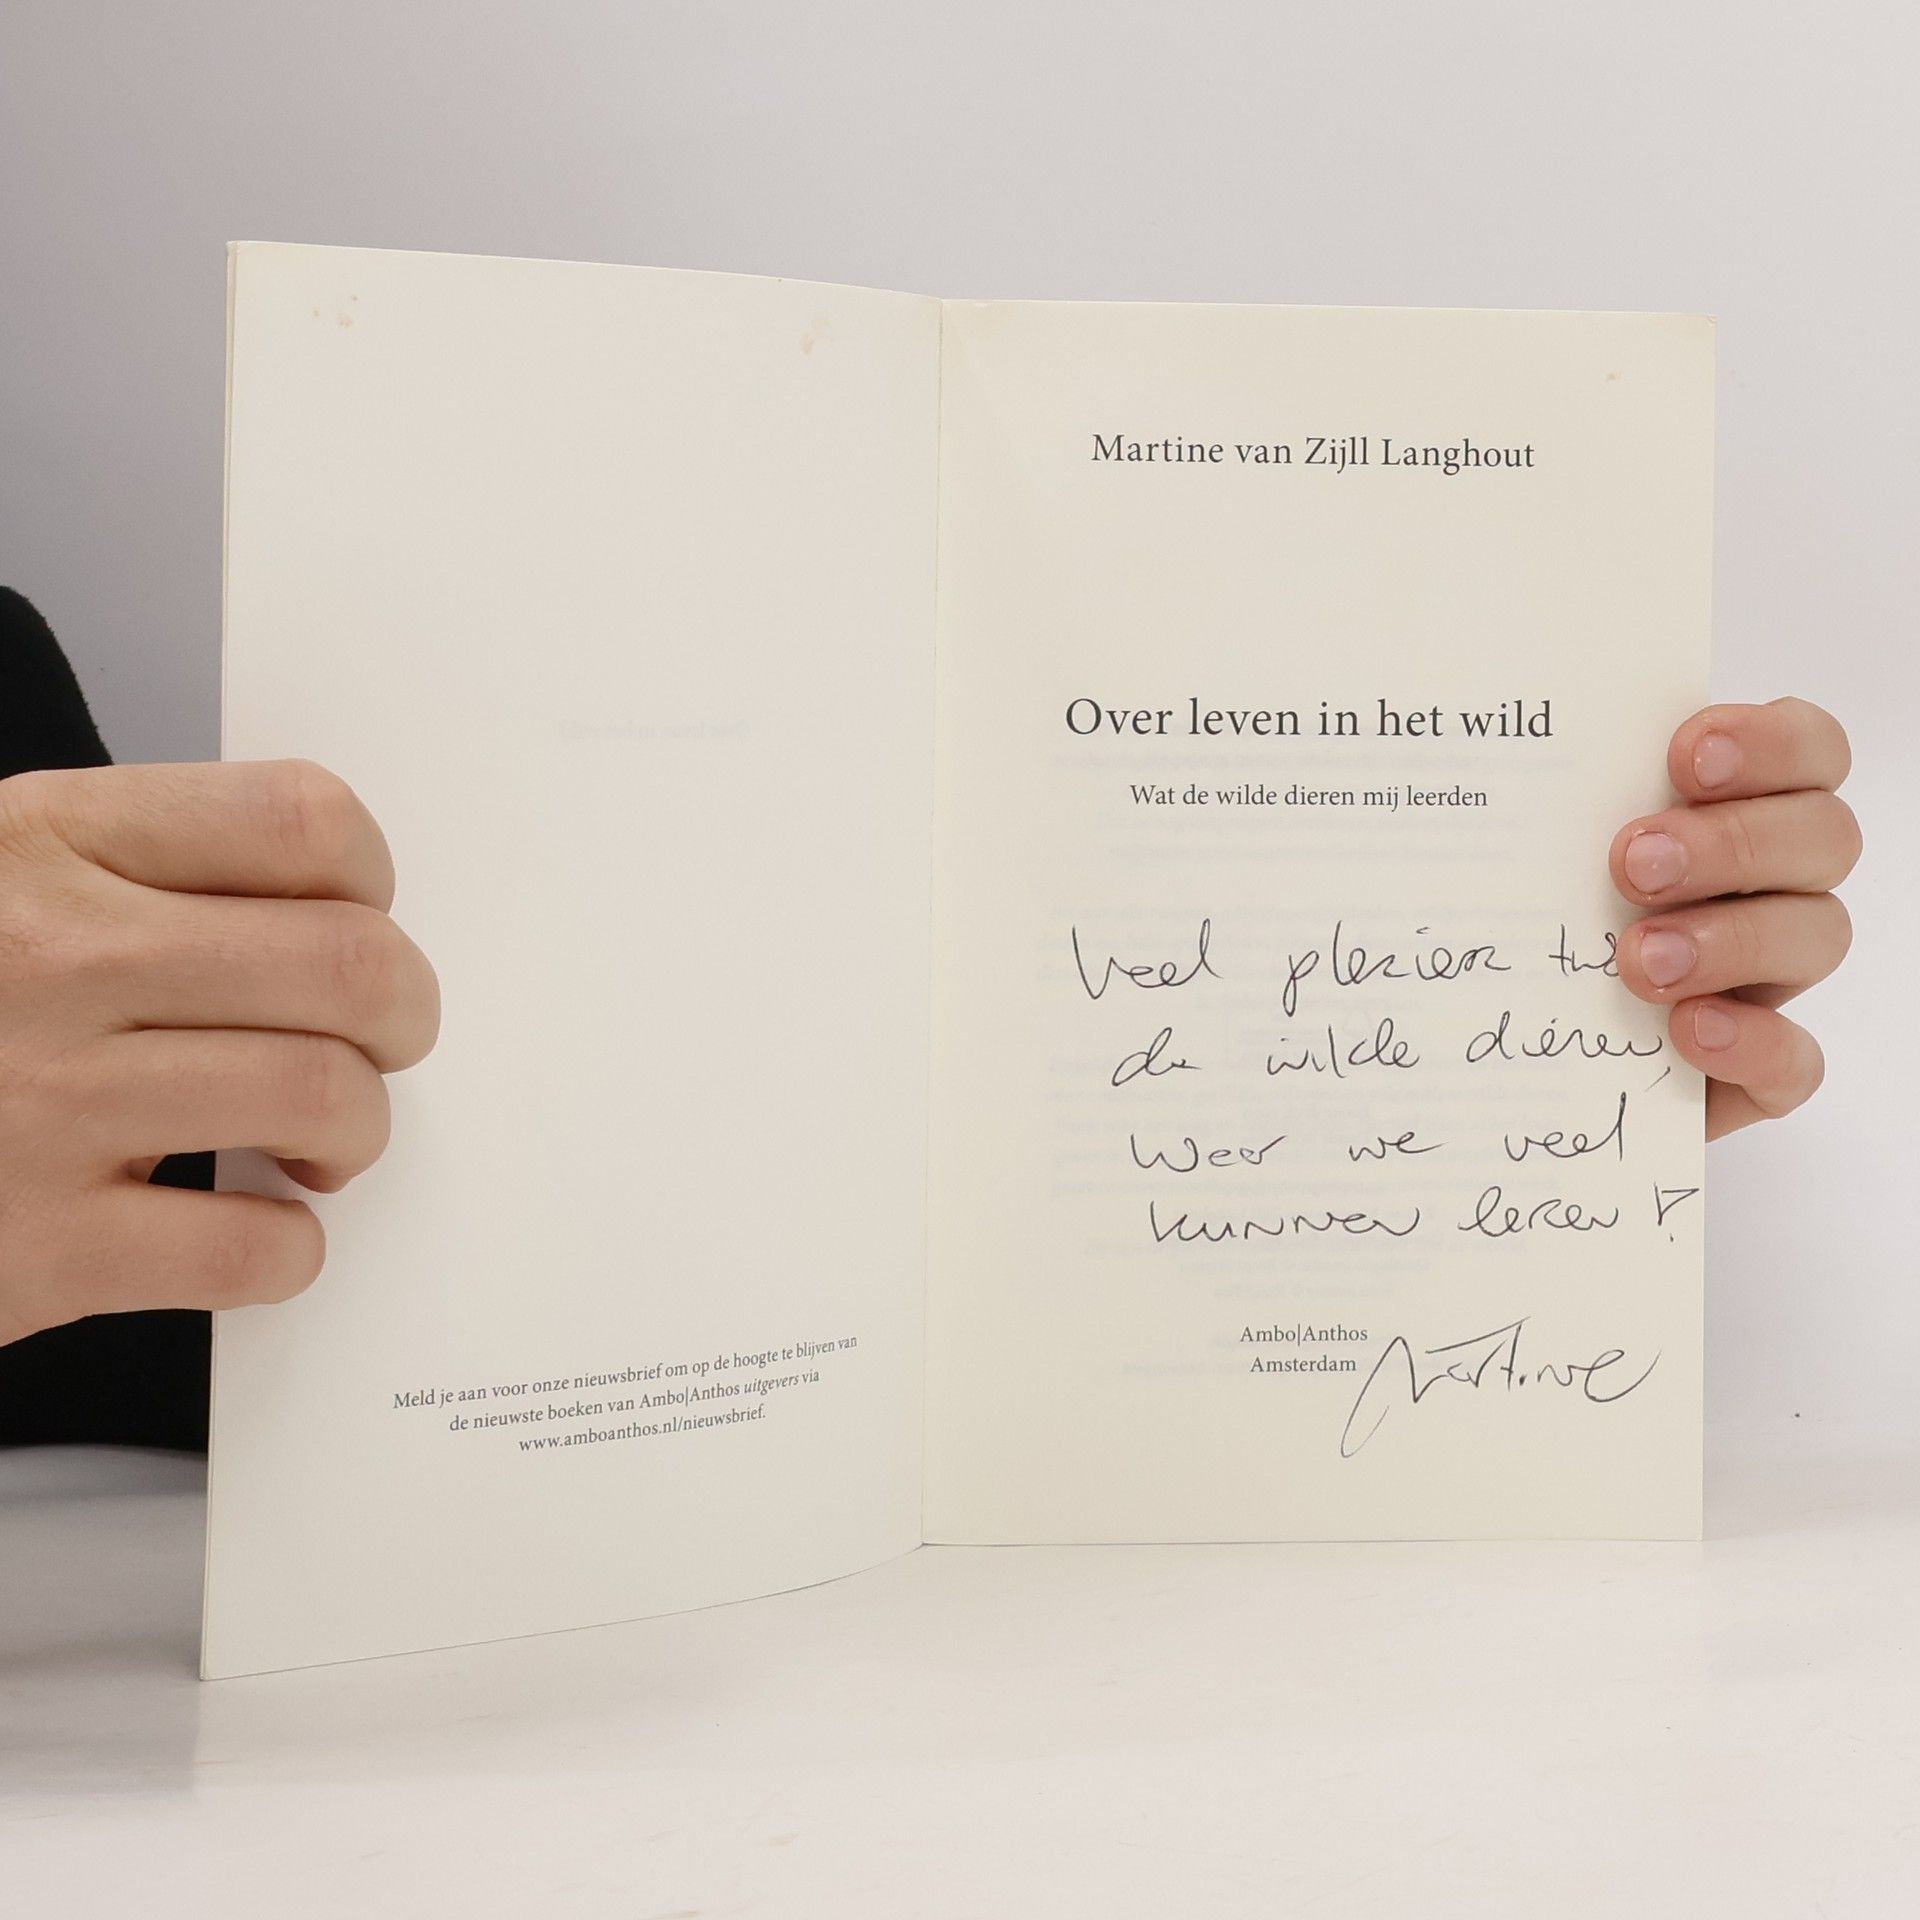 Meld je aan voor onze nieuwsbrief om op de hoogte te blijven van
de nieuwste boeken van Ambo|Anthos uitgevers via
www.amboanthos.nl/nieuwsbrief.
Martine van Zijll Langhout
Over leven in het wild
Wat de wilde dieren mij leerden
Veel plezier
de wilde dieren,
Waar we veel
kunnen leren!
Ambo|Anthos
Amsterdam
Martine